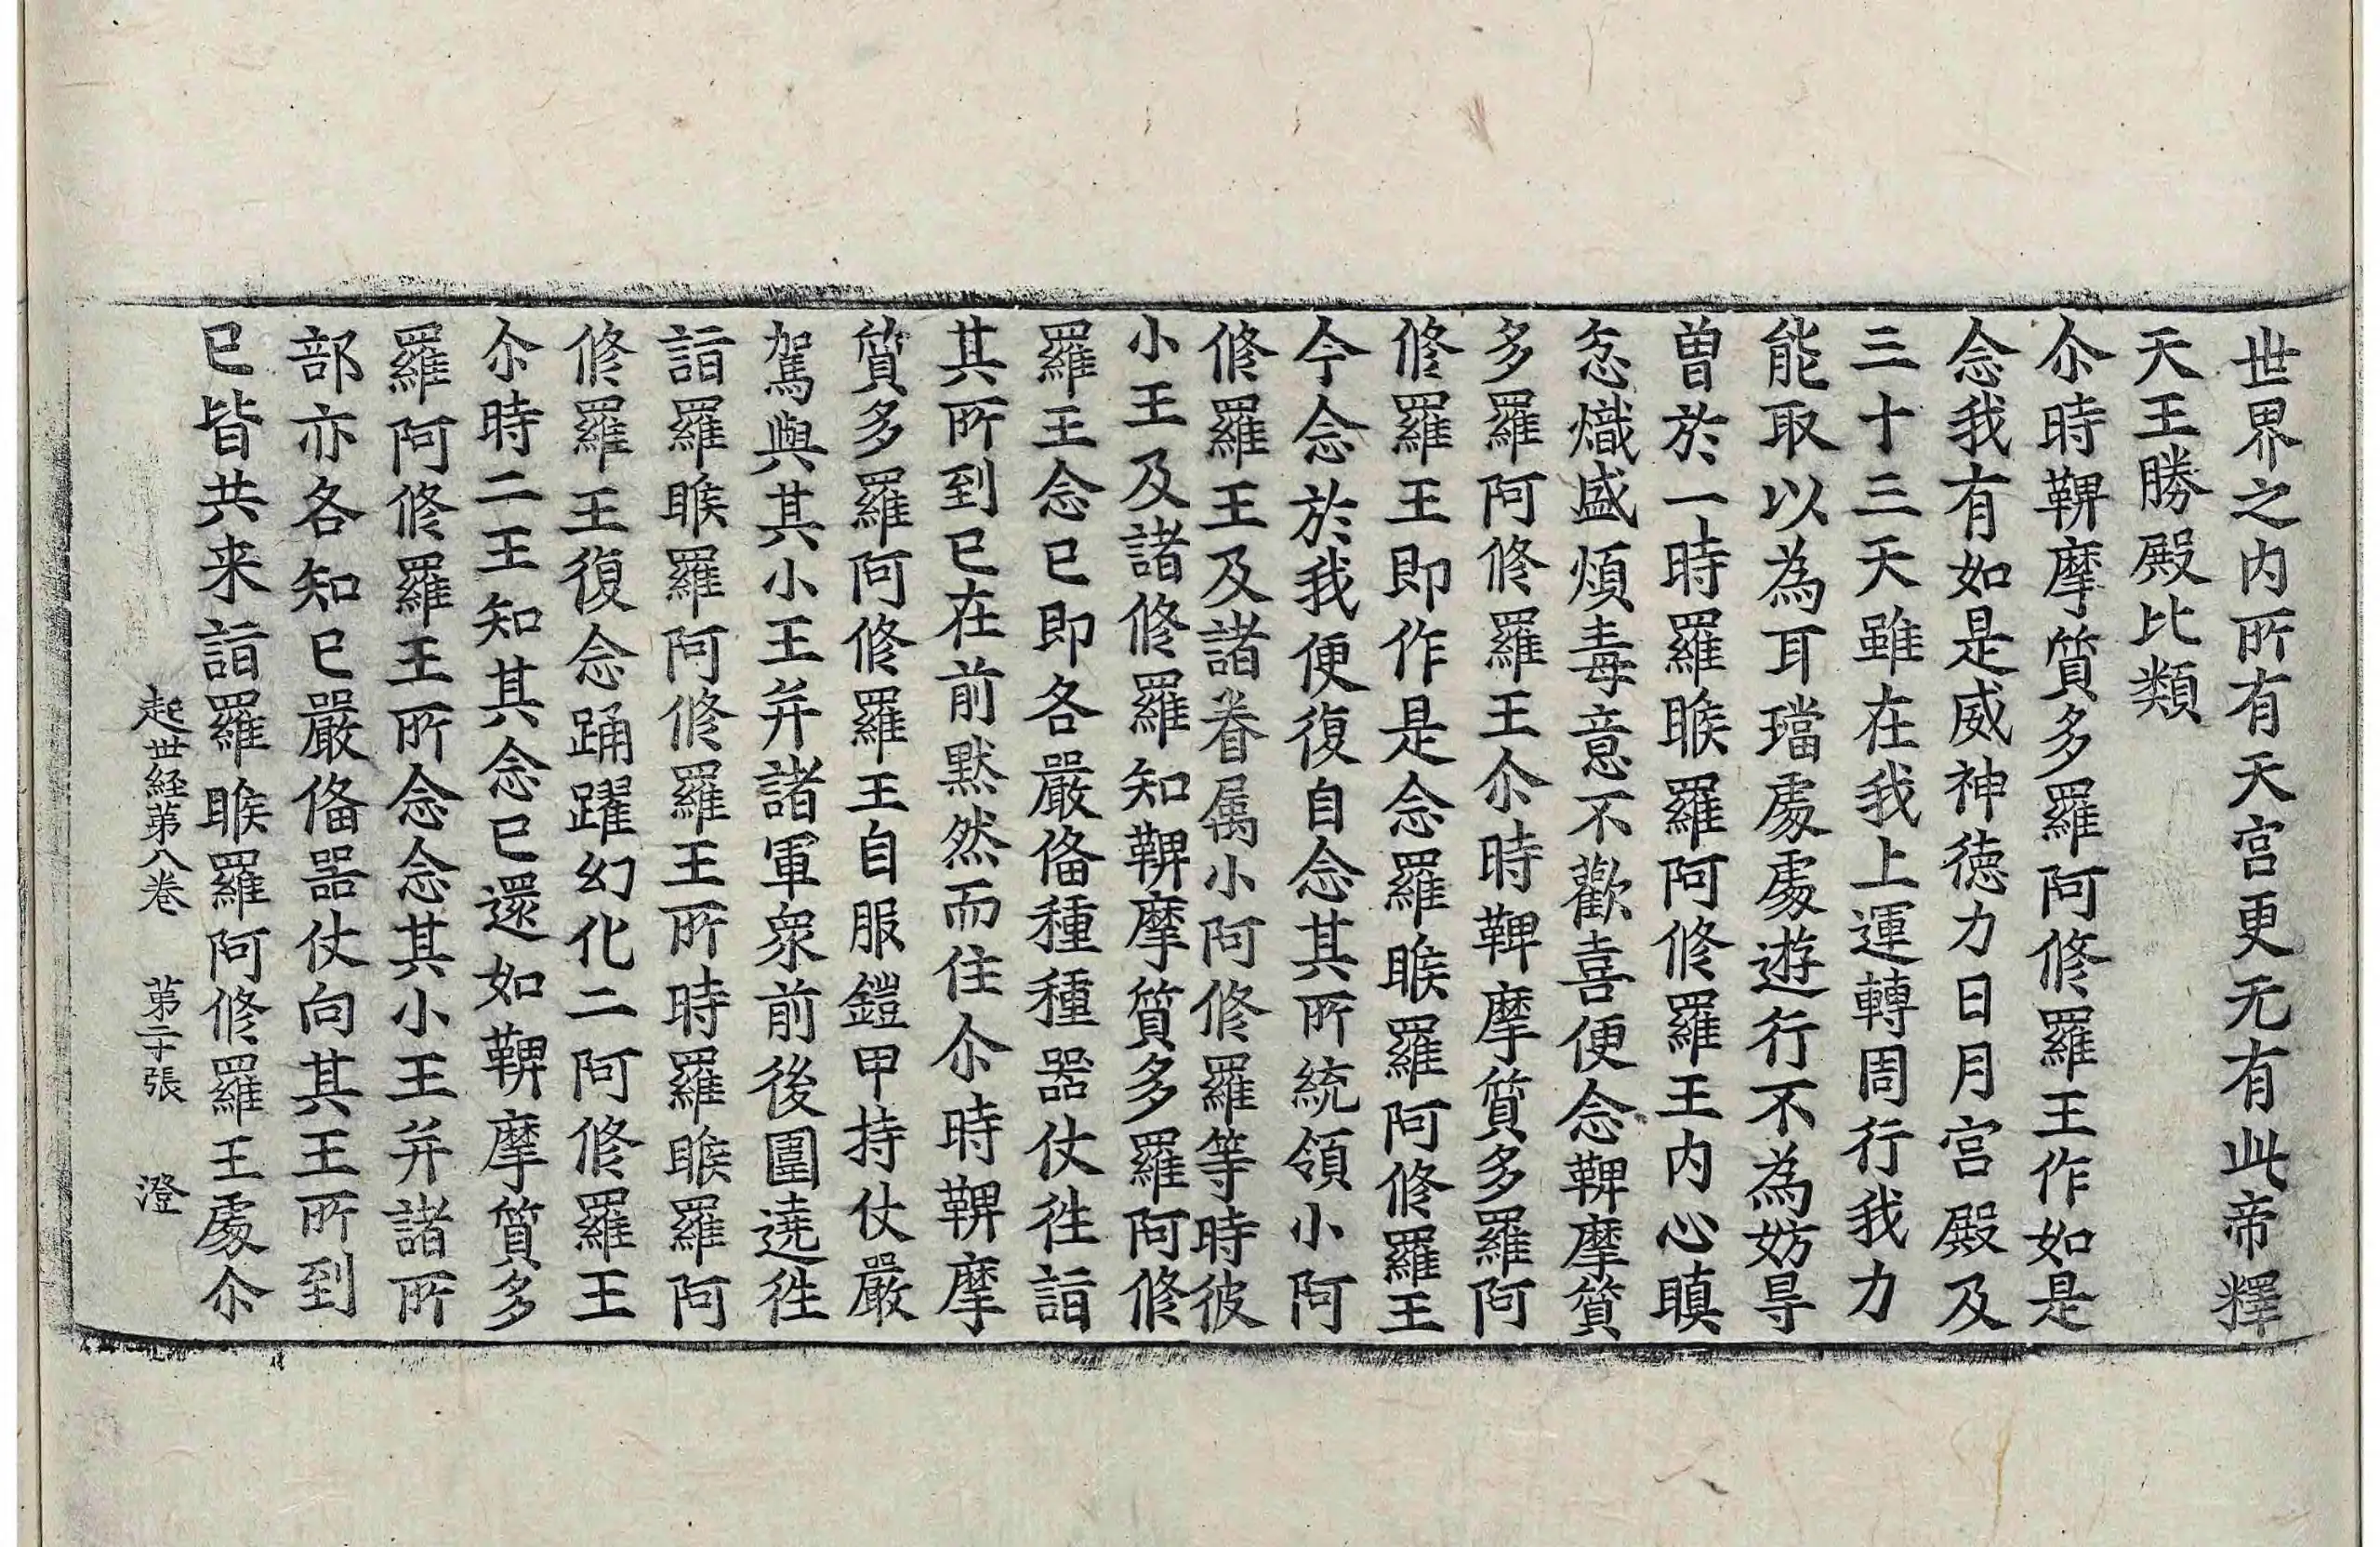 世界之内所有天宮更无有此帝釋
天王勝殿比類
尒時鞞摩質多羅阿修羅王作如是
念我有如是威神德力日月宮殿及
三十三天雖在我上運轉周行我力
能取以為耳璫處處遊行不為妨㝵
曽於一時羅睺羅阿修羅王内心瞋
忿熾盛煩毒意不歡喜便念鞞摩質
多羅阿修羅王尒時鞞摩質多羅阿
修羅王即作是念羅睺羅阿修羅王
今念於我便復自念其所統領小阿
修羅王及諸眷属小阿修羅等時彼
小王及諸修羅知鞞摩質多羅阿修
羅王念已即各嚴俻種種器仗徃詣
其所到已在前黙然而住尒時鞞摩
質多羅阿修羅王自服鎧甲持仗嚴
駕與其小王并諸軍衆前後圍遶徃
詣羅睺羅阿修羅王所時羅睺羅阿
修羅王復念踊躍幻化二阿修羅王
尒時二王知其念已還如鞞摩質多
羅阿修羅王所念念其小王并諸所
部亦各知已嚴俻器仗向其王所到
已皆共来詣羅睺羅阿修羅王處尒
起世経第八巻 第二十張 澄